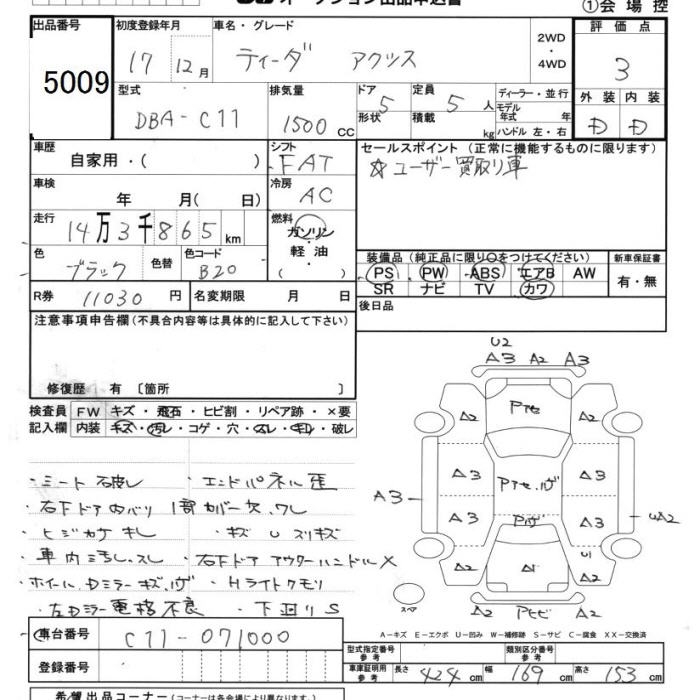 ①会場控
出品番号
5009
初度登録年月
17 12月
車名・グレード
ティーダ アクシス
2WD
・
4WD
評価点
3
型式
DBA-C11
排気量
1500 CC
ドア
5
形状
定員
5 人
積載
kg
ディーラー・並行
モデル
年式 年
ハンドル 左・右
外装 内装
D D
車歴
自家用・( )
シフト
FAT
セールスポイント(正常に機能するものに限ります)
☆ユーザー買取り車
車検
年 月( 日)
冷房
AC
走行
14万3千865km
燃料
ガソリン
・
軽油
( )
色
ブラック
色替
色コード
B20
装備品(純正品に限り○をつけてください)
PS PW ABS エアB AW
SR ナビ TV カワ
新車保証書
有・無
R券
11030円
名変期限 月 日
後日品
注意事項申告欄(不具合内容等は具体的に記入して下さい)
修復歴 有 〔箇所 〕
検査員
記入欄
FW キズ・飛石・ヒビ割・リペア跡・×要
内装 キズ・汚レ・コゲ・穴・スレ・キレ・破レ
・シート破レ ・エンドパネル歪
・右下ドア内バリ 1部カバー欠.ワレ
・ヒジカケキレ ・キズ U スリキズ
・車内汚れ.スレ ・右下ドア アウターハンドル×
・ホイール.Dミラーキズ.ハゲ ・Hライトクモリ
・左Dミラー電格不良 ・下廻りS
U2
A3 A2 A3
A2 A2
A3
A3 A3
A3 A3
UA2
U1
A2 A2
A2 A2
スペア
A-キズ E-エクボ U-凹み W-補修跡 S-サビ C-腐食 XX-交換済
車台番号
C11-071000
登録番号
型式指定番号
参考
類別区分番号
参考
車庫証明用
参考
長さ 424cm 幅 169cm 高さ 153cm
希望出品コーナー(コーナーは各会場により異なります)